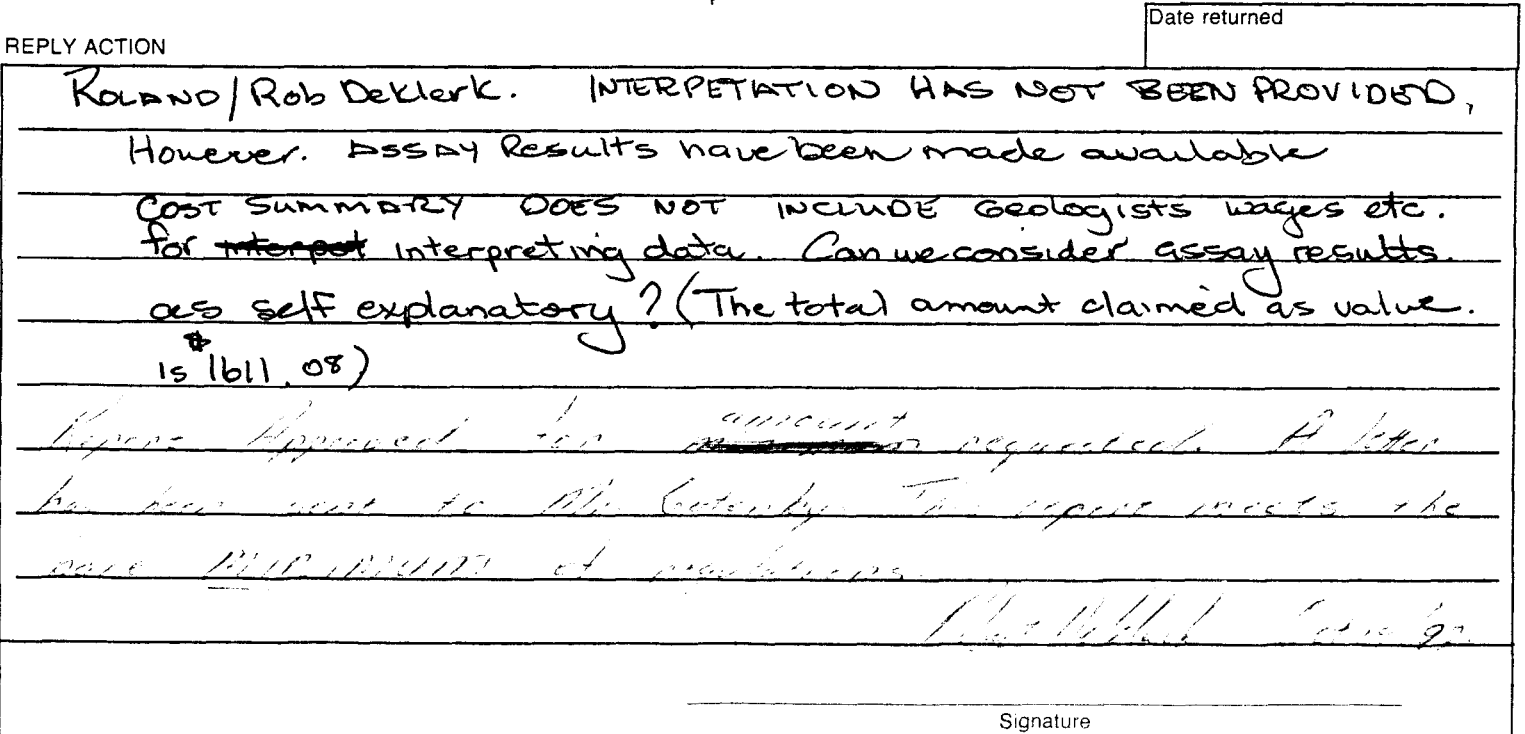 Date returned
REPLY ACTION
ROLAND/Rob Deklerk. INTERPETATION HAS NOT BEEN PROVIDED,
However. ASSAY Results have been made available
COST SUMMARY DOES NOT INCLUDE Geologists wages etc.
for interpreting data. Can we consider assay results.
as self explanatory? (The total amount claimed as value.
is $1611.08)
Report Approved for amount requested. A letter
has been sent to Mr. This report meets the
bare MINIMUM of regulations.
Signature